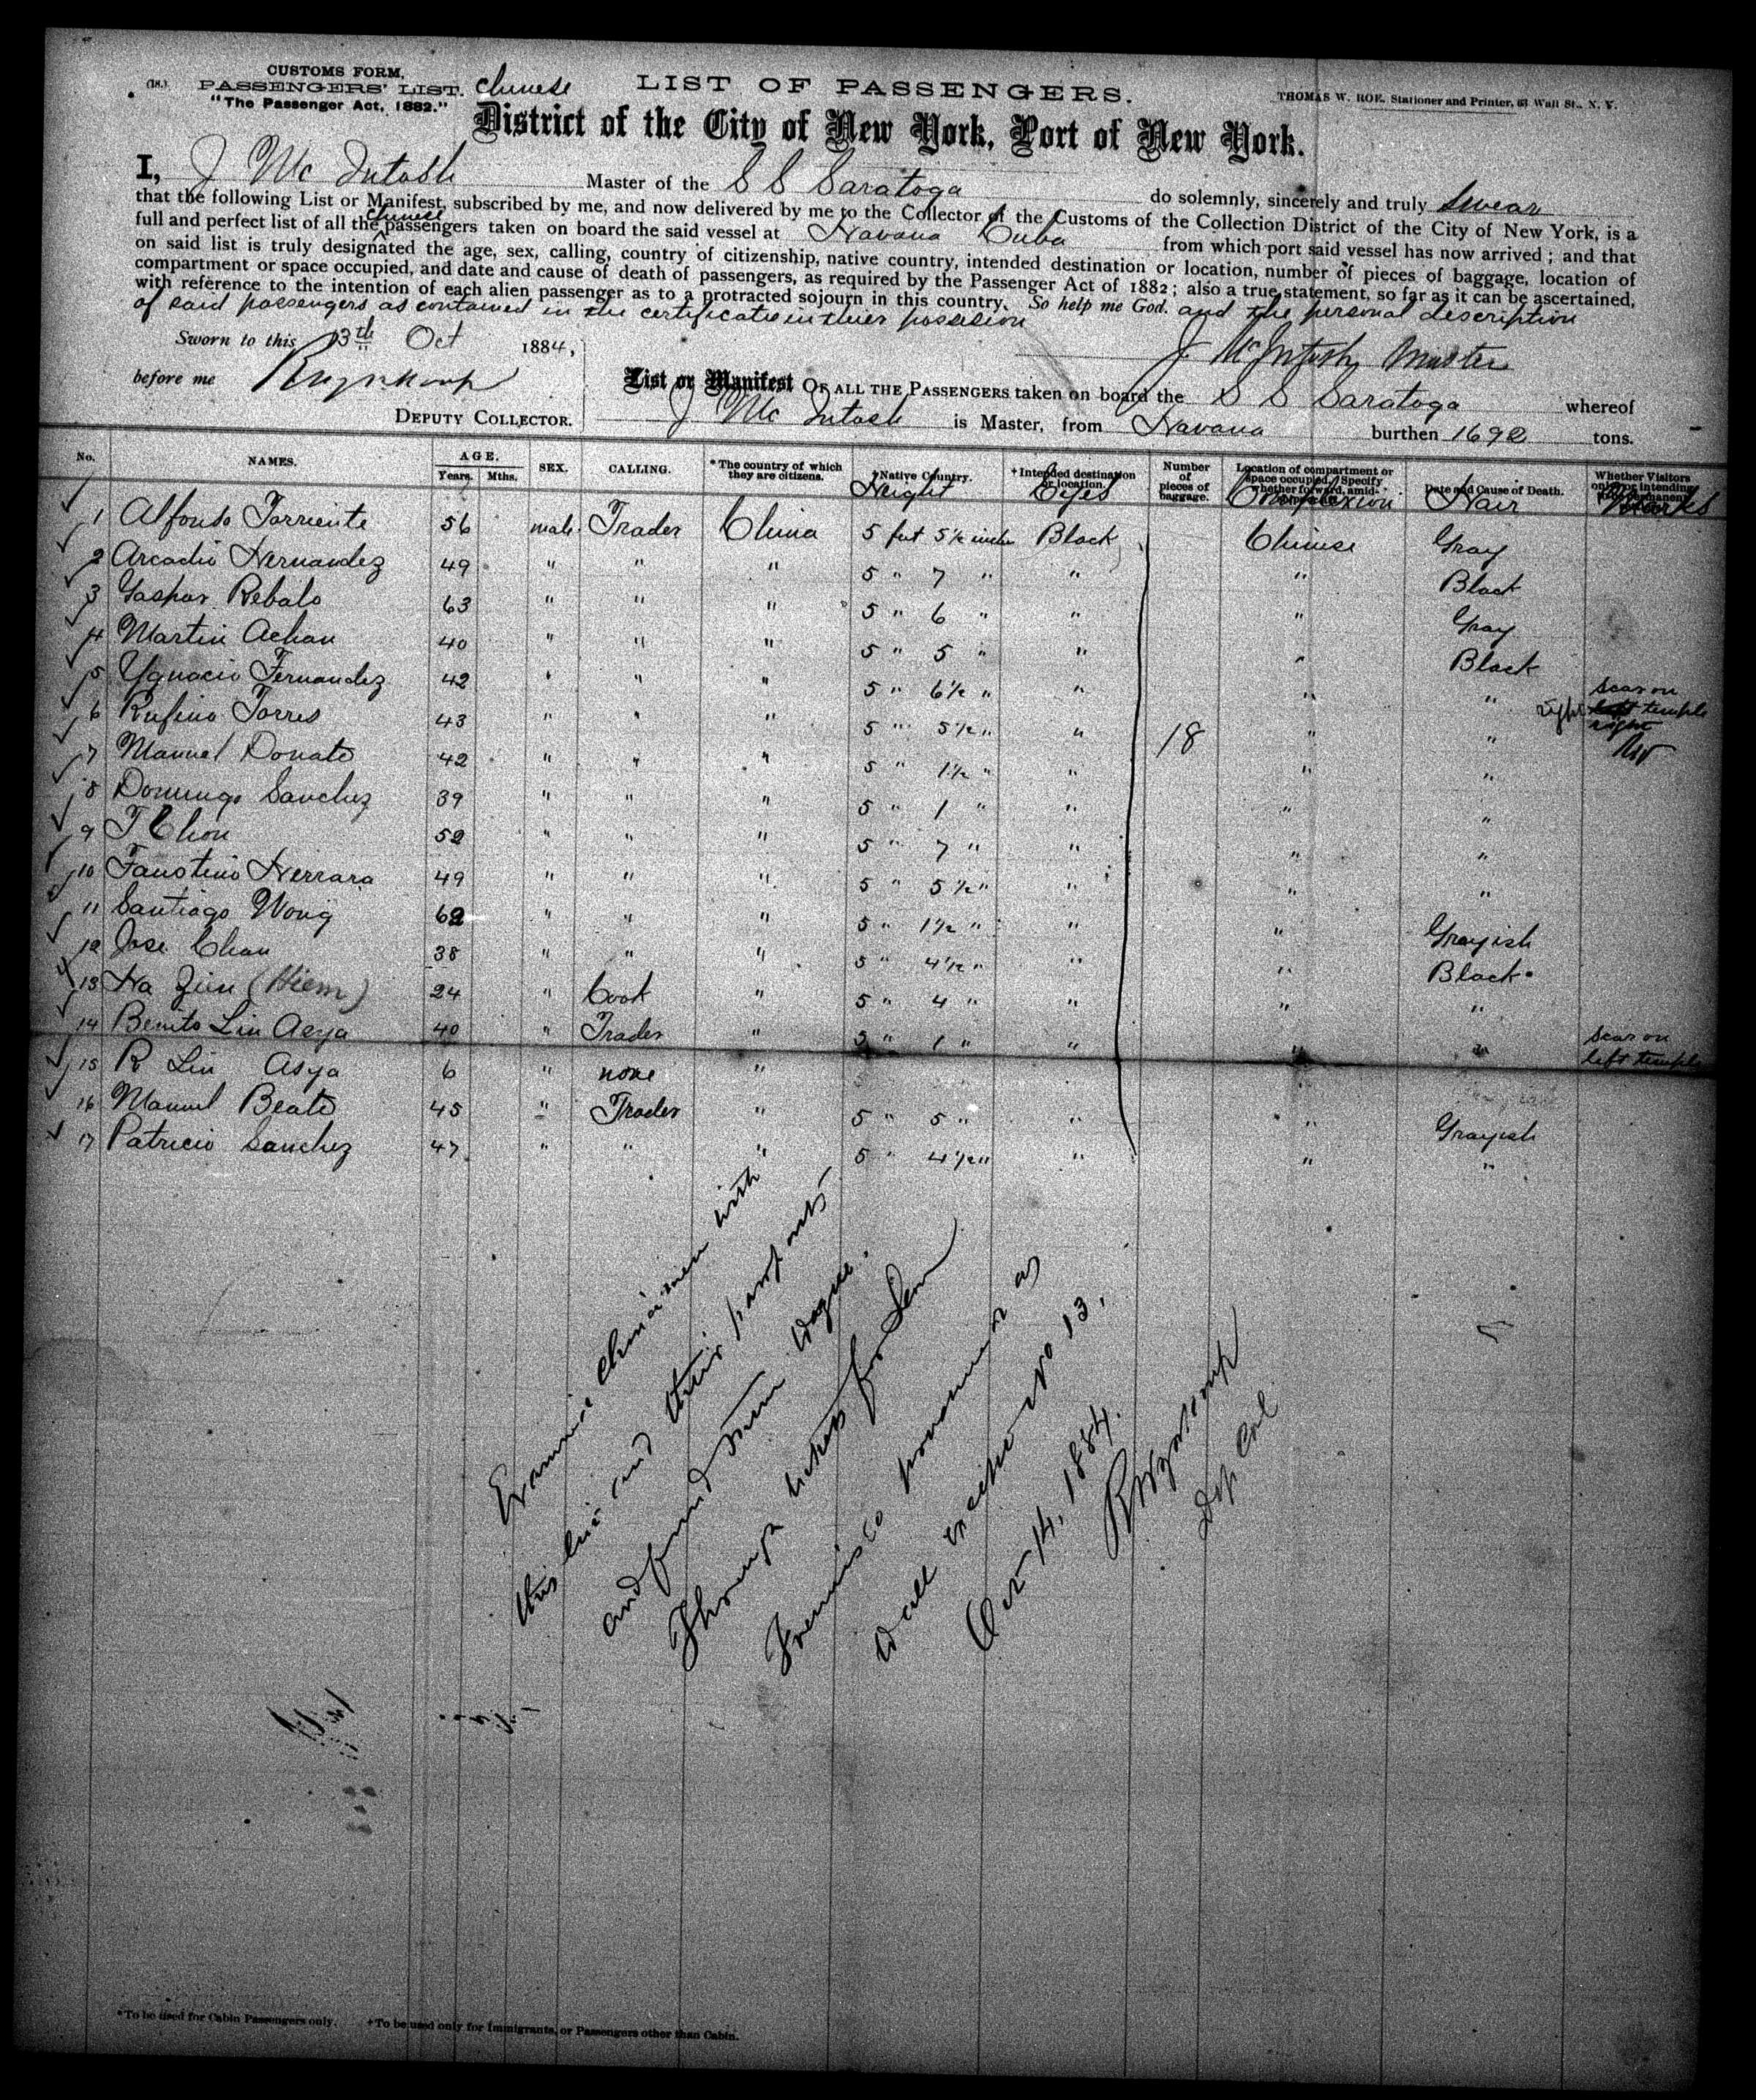 CUSTOMS FORM.
(18.) PASSENGERS' LIST. Chinese LIST OF PASSENGERS.
"The Passenger Act, 1882." THOMAS W. ROE, Stationer and Printer, 63 Wall St., N. Y.
District of the City of New York, Port of New York.
I, J McIntosh Master of the S S Saratoga do solemnly, sincerely and truly swear
that the following List or Manifest, subscribed by me, and now delivered by me to the Collector of the Customs of the Collection District of the City of New York, is a
full and perfect list of all the Chinese passengers taken on board the said vessel at Havana Cuba from which port said vessel has now arrived; and that
on said list is truly designated the age, sex, calling, country of citizenship, native country, intended destination or location, number of pieces of baggage, location of
compartment or space occupied, and date and cause of death of passengers, as required by the Passenger Act of 1882; also a true statement, so far as it can be ascertained,
with reference to the intention of each alien passenger as to a protracted sojourn in this country. So help me God. and the personal description
of said passengers as contained in the certificates in their possesion
Sworn to this 13th Oct 1884, J McIntosh Master
before me
DEPUTY COLLECTOR.
List or Manifest OF ALL THE PASSENGERS taken on board the S S Saratoga whereof
J McIntosh is Master, from Havana burthen 1692 tons.
No. NAMES. AGE. Years. Mths. SEX. CALLING. *The country of which they are citizens. †Native Country. Height †Intended destination or location. Eyes Number of pieces of baggage. Location of compartment or space occupied. Complexion Date and Cause of Death. Hair Marks
1 Alfonso Torriente 56 male Trader China 5 feet 5½ inches Black Chinese Gray
2 Arcadio Hernandez 49 " " " 5 " 7 " " " Black
3 Gaspar Rebalo 63 " " " 5 " 6 " " " Gray
4 Martin Achan 40 " " " 5 " 5 " " " Black
5 Ygnacio Fernandez 42 " " " 5 " 6½ " " " " scar on right temple
6 Rufino Torres 43 " " " 5 " 5½ " " " "
7 Manuel Donato 42 " " " 5 " 1½ " " 18 " "
8 Domingo Sanchez 39 " " " 5 " 1 " " " "
9 T Chon 52 " " " 5 " 7 " " " "
10 Faustino Herrara 49 " " " 5 " 5½ " " " "
11 Santiago Wong 62 " " " 5 " 1½ " " " Grayish
12 Jose Chan 38 " " " 5 " 4½ " " " Black
13 Ha Zien (Hiem) 24 " Cook " 5 " 4 " " " "
14 Benito Lin Asya 40 " Trader " 5 " 1 " " " " scar on left temple
15 R Lin Asya 6 " none "
16 Manuel Beato 45 " Trader " 5 " 5 " " " Grayish
17 Patricio Sanchez 47 " " " 5 " 4½ " " " "
Examined Chinamen with
this list and their passports
and found them
Through tickets for San
Francisco
all except No 13.
Oct 14, 1884.
Dep Col
*To be used for Cabin Passengers only. †To be used only for Immigrants, or Passengers other than Cabin.